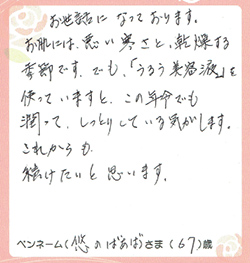 お世話になっております。
お肌には、悪い寒さと、乾燥する
季節です。でも、「うるう美容液」を
使っていますと、この年令でも
潤って、しっとりしている気がします。
これからも
続けたいと思います。
ペンネーム(悠のばあば)さま(67)歳